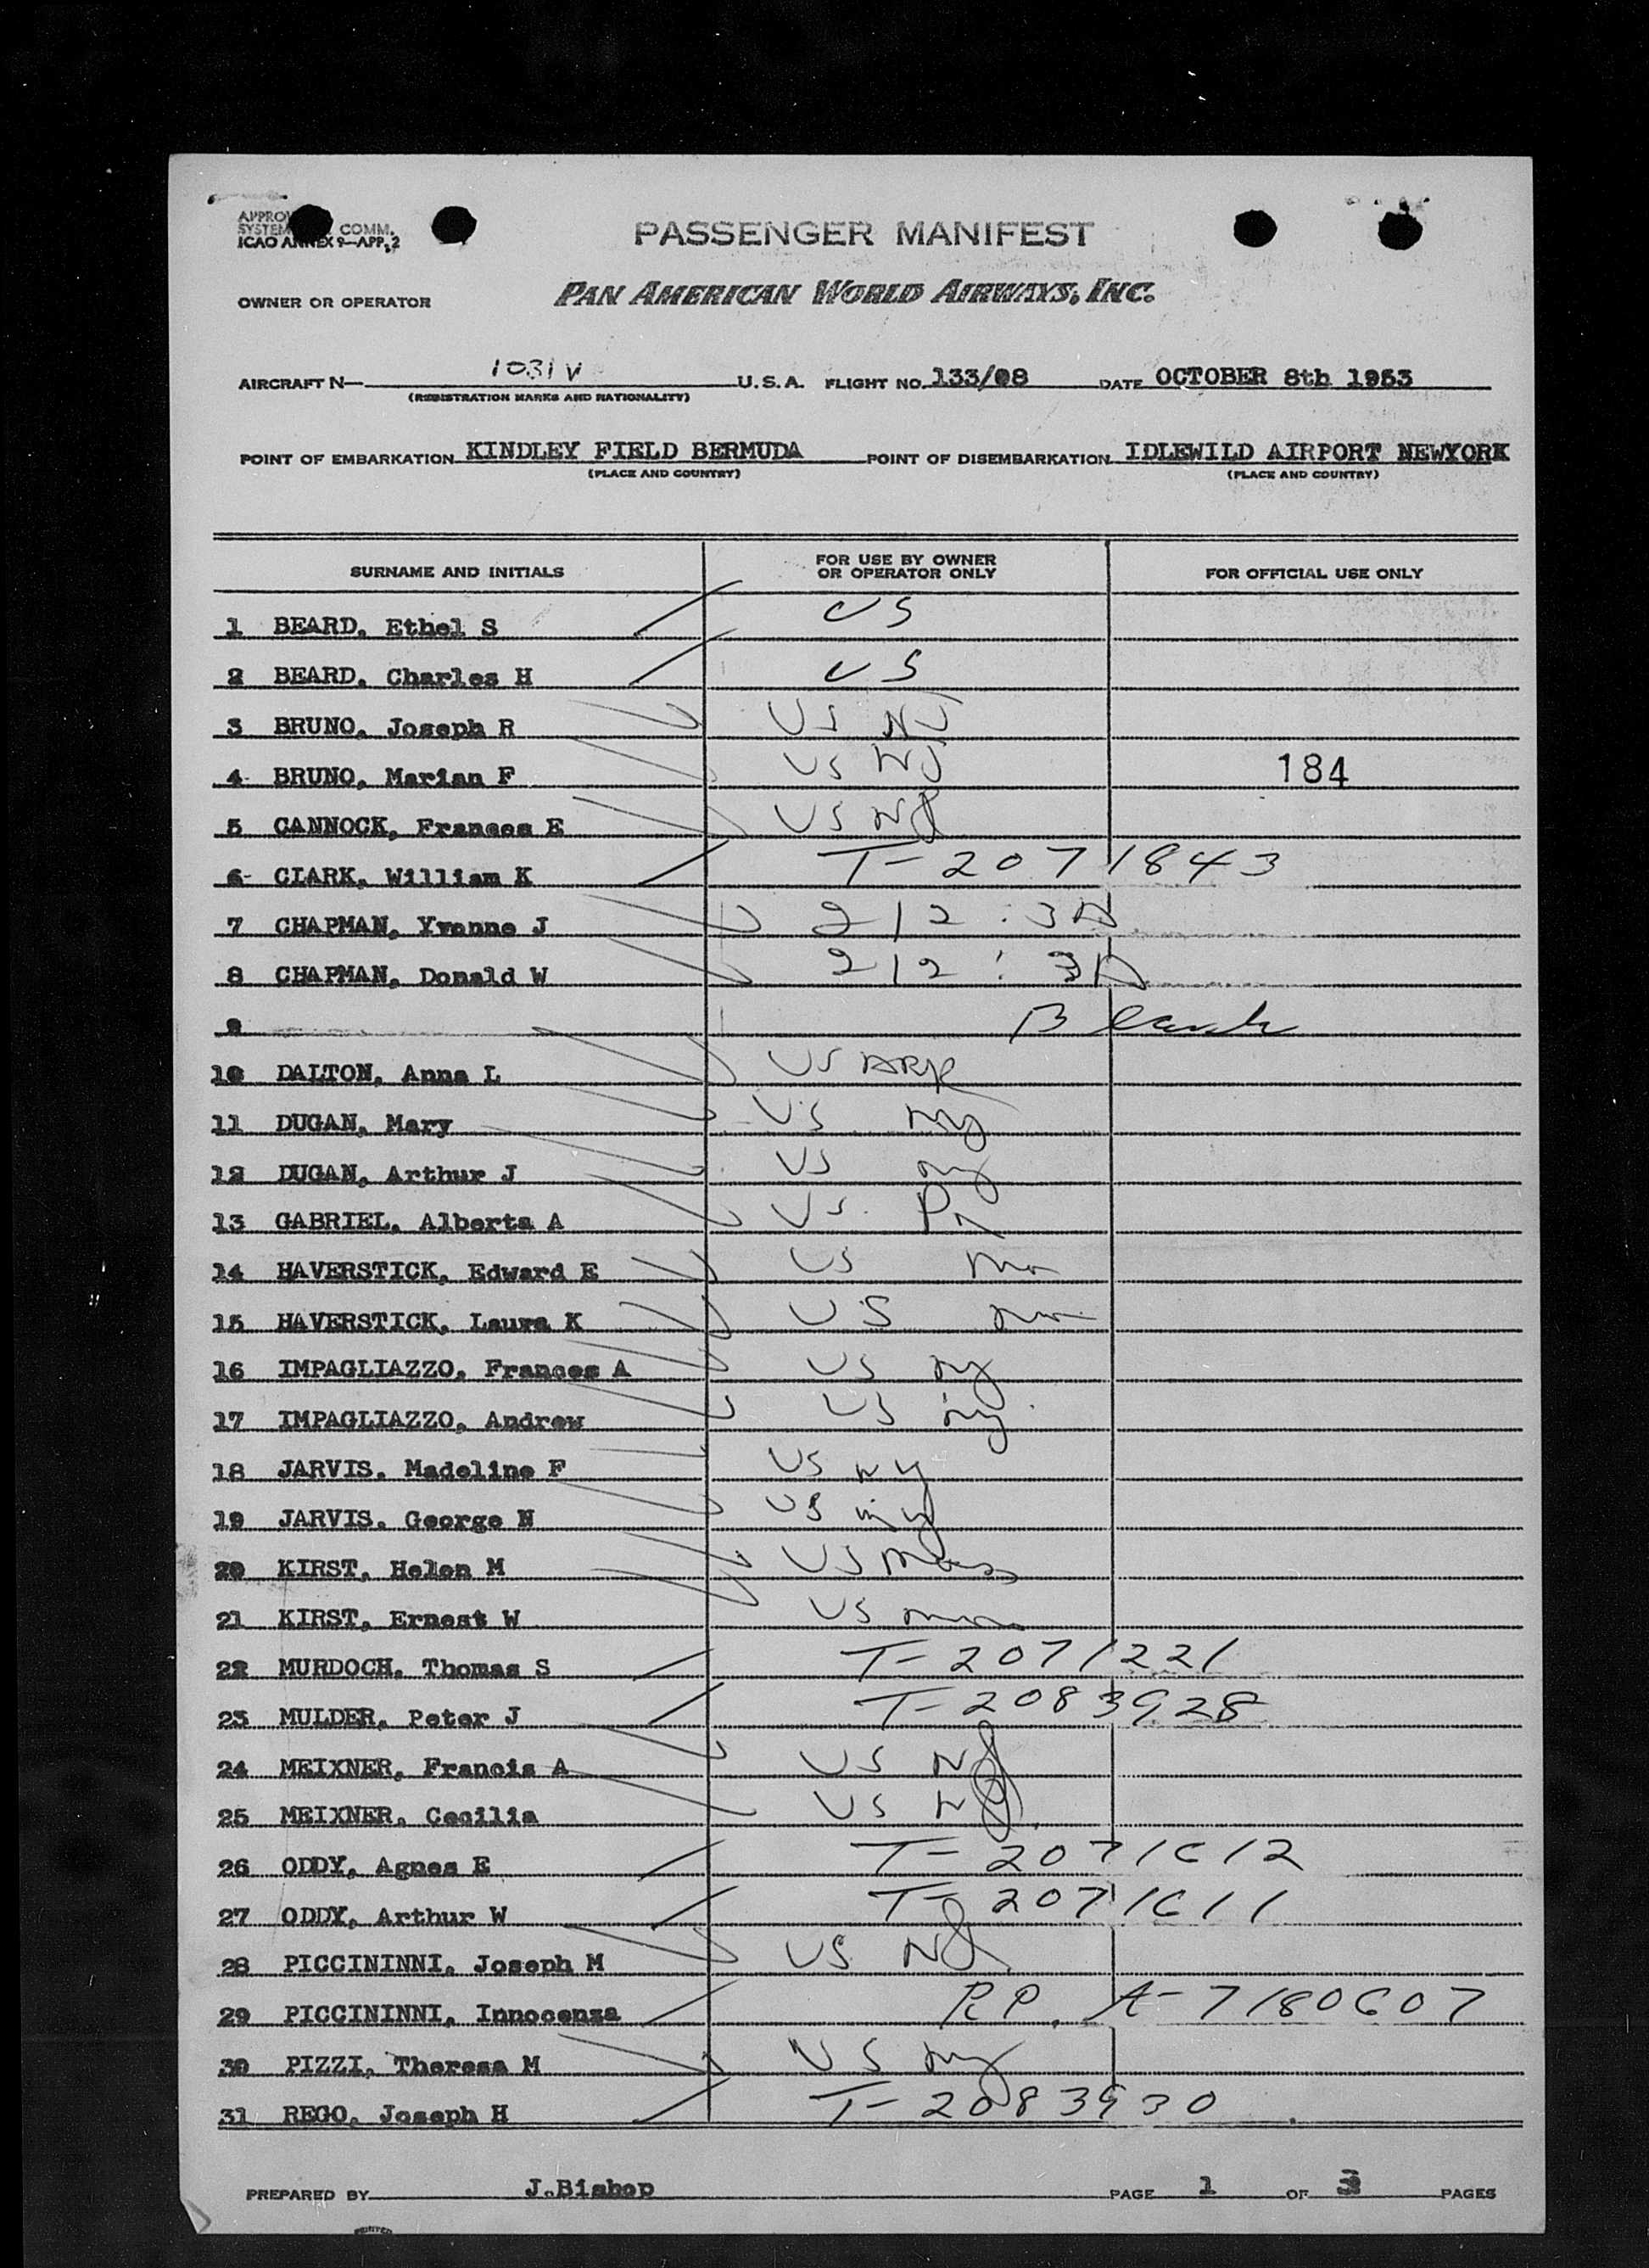 APPROV
SYSTEM COMM.
ICAO ANNEX 9—APP. 2
PASSENGER MANIFEST
OWNER OR OPERATOR PAN AMERICAN WORLD AIRWAYS, INC.
AIRCRAFT N— 1031V U.S.A. FLIGHT NO. 133/08 DATE OCTOBER 8th 1953
(REGISTRATION MARKS AND NATIONALITY)
POINT OF EMBARKATION KINDLEY FIELD BERMUDA POINT OF DISEMBARKATION IDLEWILD AIRPORT NEWYORK
(PLACE AND COUNTRY) (PLACE AND COUNTRY)
SURNAME AND INITIALS FOR USE BY OWNER OR OPERATOR ONLY FOR OFFICIAL USE ONLY
1 BEARD, Ethel S US
2 BEARD, Charles H US
3 BRUNO, Joseph R US NJ
4 BRUNO, Marian F US NJ 184
5 CANNOCK, Frances E US NJ
6 CLARK, William K T-2071843
7 CHAPMAN, Yvonne J 212:3A
8 CHAPMAN, Donald W 212:3A
9 Blank
10 DALTON, Anna L US ARK
11 DUGAN, Mary US NY
12 DUGAN, Arthur J US NY
13 GABRIEL, Alberta A US Pa
14 HAVERSTICK, Edward E US Mo
15 HAVERSTICK, Laura K US Mo
16 IMPAGLIAZZO, Frances A US NY
17 IMPAGLIAZZO, Andrew US NY
18 JARVIS, Madeline F US NY
19 JARVIS, George N US NY
20 KIRST, Helen M US Mass
21 KIRST, Ernest W US
22 MURDOCH, Thomas S T-2071221
23 MULDER, Peter J T-2083928
24 MEIXNER, Francis A US NJ
25 MEIXNER, Cecilia US NJ
26 ODDY, Agnes E T-2071612
27 ODDY, Arthur W T-2071611
28 PICCININNI, Joseph M US NJ
29 PICCININNI, Innocenza RP. A-7180607
30 PIZZI, Theresa M US NY
31 REGO, Joseph H T-2083930
PREPARED BY J.Bishop PAGE 1 OF 3 PAGES
PRINTED